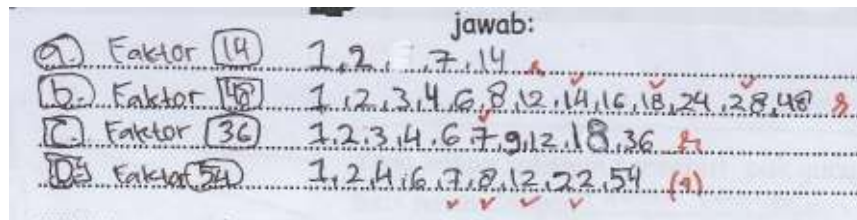 jawab:
a. Faktor 14 1,2, ,7,14
b. Faktor 48 1,2,3,4,6,8,12,14,16,18,24,28,48
C. Faktor 36 1,2,3,4,6,7,9,12,18,36
D. Faktor 54 1,2,4,6,7,8,12,22,54